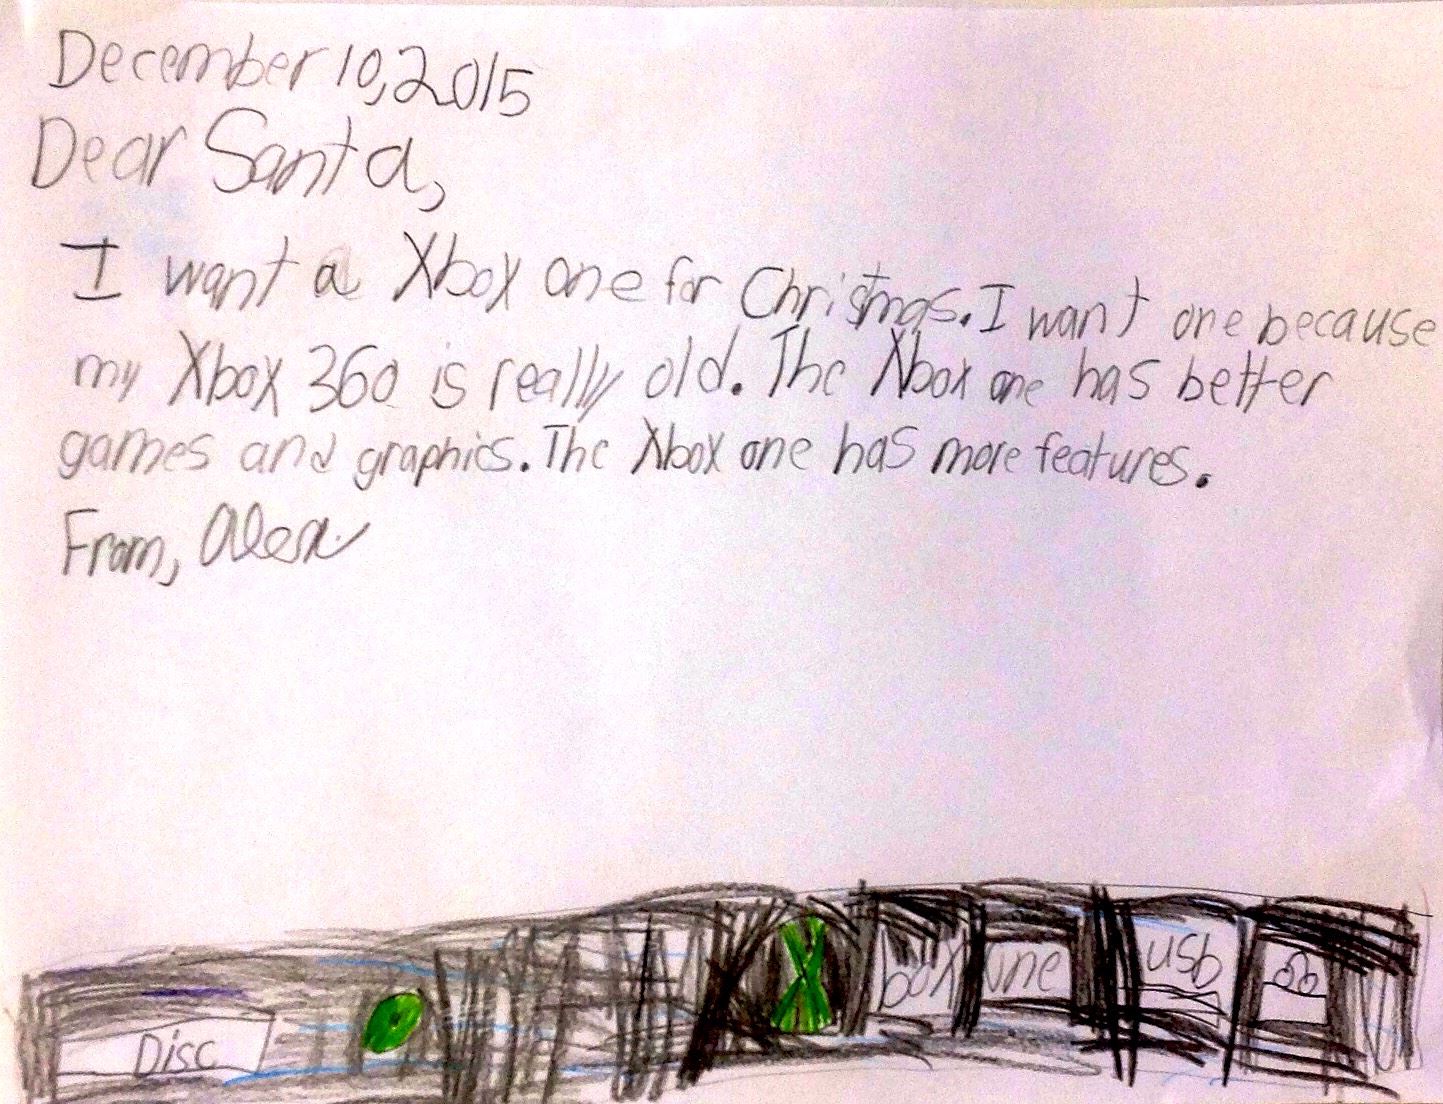 December 10, 2015
Dear Santa,
I want a Xbox one for Christmas. I want one because
my Xbox 360 is really old. The Xbox one has better
games and graphics. The Xbox one has more features.
From, Alex
Disc
X box one
usb